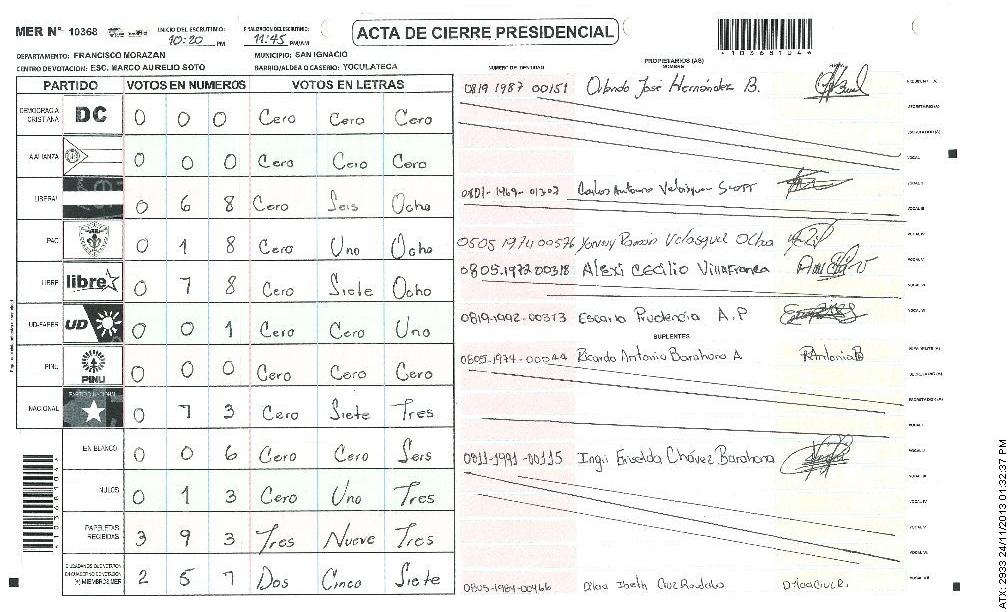 MER Nº 10368 INICIO DEL ESCRUTINIO: 10:20 PM FINALIZACION DEL ESCRUTINIO: 11:45 PM/AM
ACTA DE CIERRE PRESIDENCIAL
*10368104*
DEPARTAMENTO: FRANCISCO MORAZAN MUNICIPIO: SAN IGNACIO
CENTRO DE VOTACION: ESC. MARCO AURELIO SOTO BARRIO/ALDEA O CASERIO: YOCULATECA
PARTIDO VOTOS EN NUMEROS VOTOS EN LETRAS
DEMOCRACIA CRISTIANA DC 0 0 0 Cero Cero Cero
ALIANZA 0 0 0 Cero Cero Cero
LIBERAL 0 6 8 Cero Seis Ocho
PAC 0 1 8 Cero Uno Ocho
LIBRE libre 0 7 8 Cero Siete Ocho
UD-FAPER UD 0 0 1 Cero Cero Uno
PINU PINU 0 0 0 Cero Cero Cero
NACIONAL PARTIDO NACIONAL 0 7 3 Cero Siete Tres
EN BLANCO 0 0 6 Cero Cero Seis
NULOS 0 1 3 Cero Uno Tres
PAPELETAS RECIBIDAS 3 9 3 Tres Nueve Tres
(+) MIEMBROS MER 2 5 7 Dos Cinco Siete
NUMERO DE IDENTIDAD PROPIETARIOS (AS) NOMBRE
0819 1987 00151 Orlando José Hernández B.
0801-1969-01302 Carlos Antonio Velasquez
0505 1974 00576 Yonny Ramón Velasquez Ocho
0805.1972 00318 Alexi Cecilio Villafranca
0819-1992-00373 Prudencia A.P
SUPLENTES
0805-1974-00044 Ricardo Antonio Barahona A RAntonioB
0811-1991-00115 Ingri Eriselda Chávez Barahona
0805-1984-00466
ATX. 2933 24/11/2013 01:32:37 PM